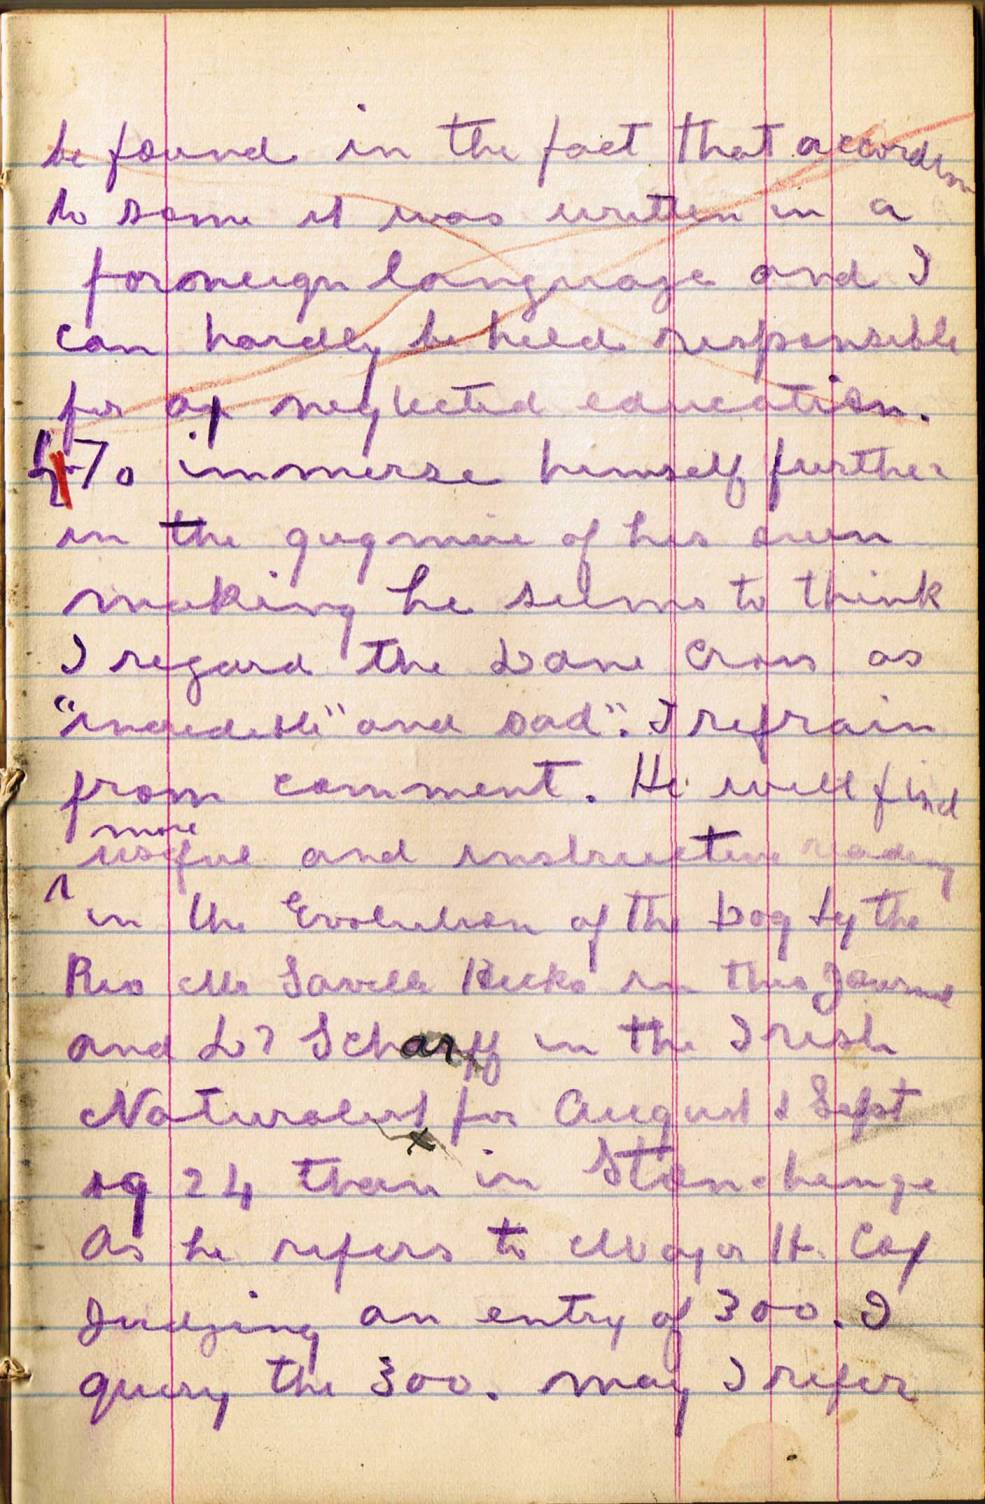 be found in the fact that according
to some it was written in a
foroneign language and I
can hardly be held responsible
for a neglected education.
To immerse himself further
in the quqmire of his own
making he seems to think
I regard the Dane Cross as
"incredible" and sad". I refrain
from comment. He will find
more
useful and instructive reading
in the Evolution of the Dog by the
Rev Mr Savell Hicks in this Journal
and Dr Scharff in the Irish
Naturalist for August & Sept
1924 than in Stonehenge
As he refers to Major H. Cof
Judging an entry of 300. I
query the 300. May I refer